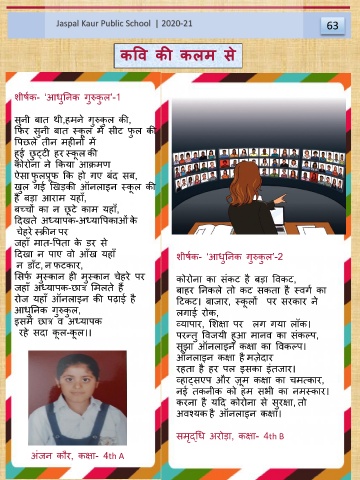 Jaspal Kaur Public School | 2020-21
63
कवि की कलम से
शीर्षक- 'आधुनिक गुरुकुल'-1
सुनी बात थी,हमने गुरुकुल की,
फिर सुनी बात स्कूल में सीट फुल की
पिछले तीन महीनों में
हुई छुट्टी हर स्कूल की
कोरोना ने किया आक्रमण
ऐसा फुलप्रूफ कि हो गए बंद सब,
खुल गई खिड़की ऑनलाइन स्कूल की
है बड़ा आराम यहाँ,
बच्चों का न छूटे काम यहाँ,
दिखते अध्यापक-अध्यापिकाओं के
चेहरे स्क्रीन पर
जहाँ मात-पिता के डर से
दिखा न पाए वो आँख यहाँ
न डाँट,न फटकार,
सिर्फ मुस्कान ही मुस्कान चेहरे पर
जहाँ अध्यापक-छात्र मिलते हैं
रोज यहाँ ऑनलाइन की पढाई है
आधुनिक गुरुकुल,
इसमें छात्र व अध्यापक
रहे सदा कूल-कूल।।
अंजन कौर, कक्षा- 4th A
शीर्षक- 'आधुनिक गुरुकुल'-2
कोरोना का संकट है बड़ा विकट,
बाहर निकले तो कट सकता है स्वर्ग का
टिकट। बाजार, स्कूलों पर सरकार ने
लगाई रोक,
व्यापार, शिक्षा पर लग गया लॉक।
परन्तु विजयी हुआ मानव का संकल्प,
सूझा ऑनलाइन कक्षा का विकल्प।
ऑनलाइन कक्षा है मज़ेदार
रहता है हर पल इसका इंतजार।
व्हाट्सएप और ज़ूम कक्षा का चमत्कार,
नई तकनीक को हम सभी का नमस्कार।
करना है यदि कोरोना से सुरक्षा,तो
अवश्यक है ऑनलाइन कक्षा।
समृद्धि अरोड़ा, कक्षा- 4th B